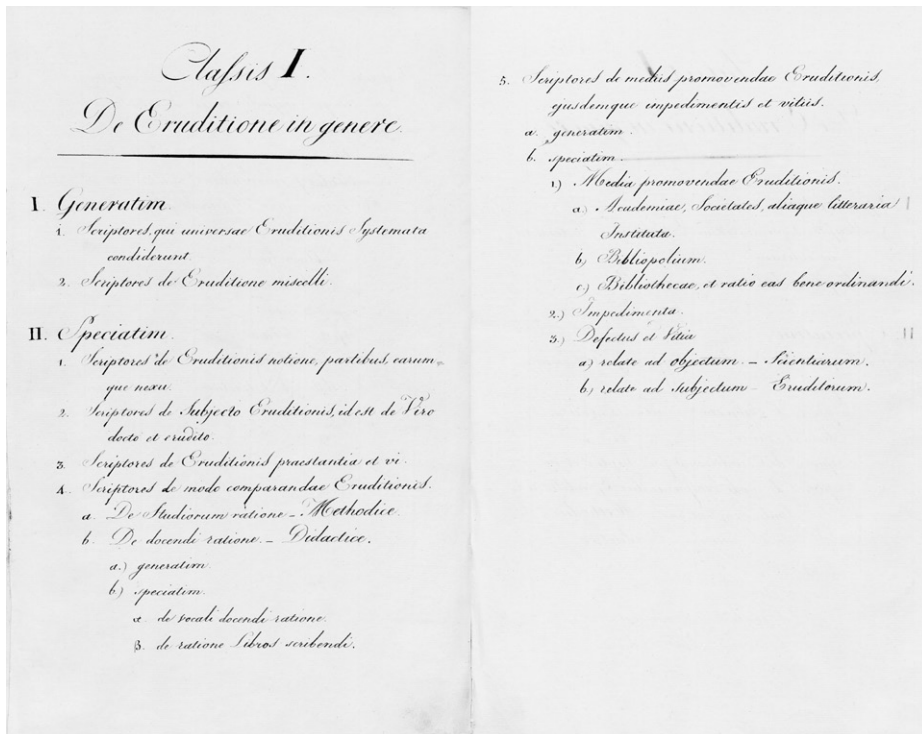 Classis I.
De Eruditione in genere.
I. Generatim.
1. Scriptores, qui universae Eruditionis Systemata
condiderunt.
2. Scriptores de Eruditione miscelli.
II. Speciatim.
1. Scriptores de Eruditionis notione, partibus, earum=
que nexu.
2. Scriptores de Subjecto Eruditionis, id est de Viro
docto et erudito.
3. Scriptores de Eruditionis praestantia et vi.
4. Scriptores de modo comparandae Eruditionis.
a. De Studiorum ratione – Methodice.
b. De docendi ratione. – Didactice.
a.) generatim.
b.) speciatim.
α. de vocali docendi ratione.
β. de ratione Libros scribendi.
5. Scriptores de mediis promovendae Eruditionis,
ejusdemque impedimentis et vitiis.
a. generatim.
b. speciatim.
1.) Media promovendae Eruditionis.
a.) Academiae, Societates, aliaque litteraria
Instituta.
b.) Bibliopolium.
c.) Bibliothecae, et ratio eas bene ordinandi.
2.) Impedimenta.
3.) Defectus et Vitia
a.) relate ad objectum. – Scientiarum.
b.) relate ad subjectum – Eruditorum.